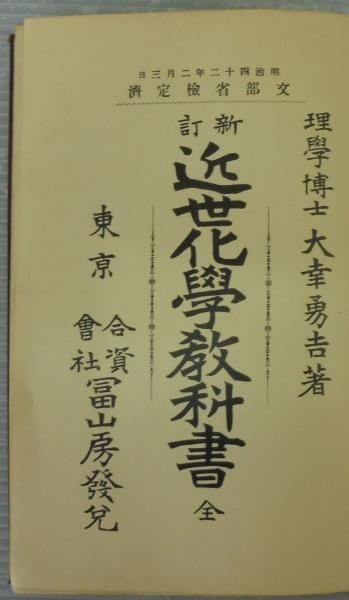 明治四十二年二月三日
文部省檢定濟
理學博士 大幸勇吉著
新訂
近世化學教科書 全
東京
合資會社 冨山房發兌